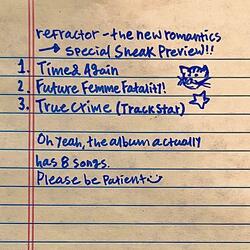 refractor - the new romantics
→ special sneak preview!!
1. Time & Again
2. Future Femme Fatality!
3. True Crime (Track Star)
Oh yeah, the album actually
has 8 songs.
Please be Patient